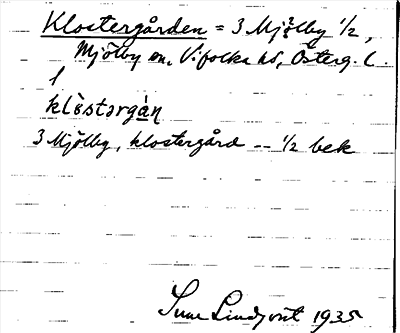 Klostergården = 3 Mjölby 1/2,
Mjölby sn, Vifolka hd, Österg. l.
l
klòstərgàn
3 Mjölby, klostergård -- 1/2 bek
Sune Lindqvist 1935